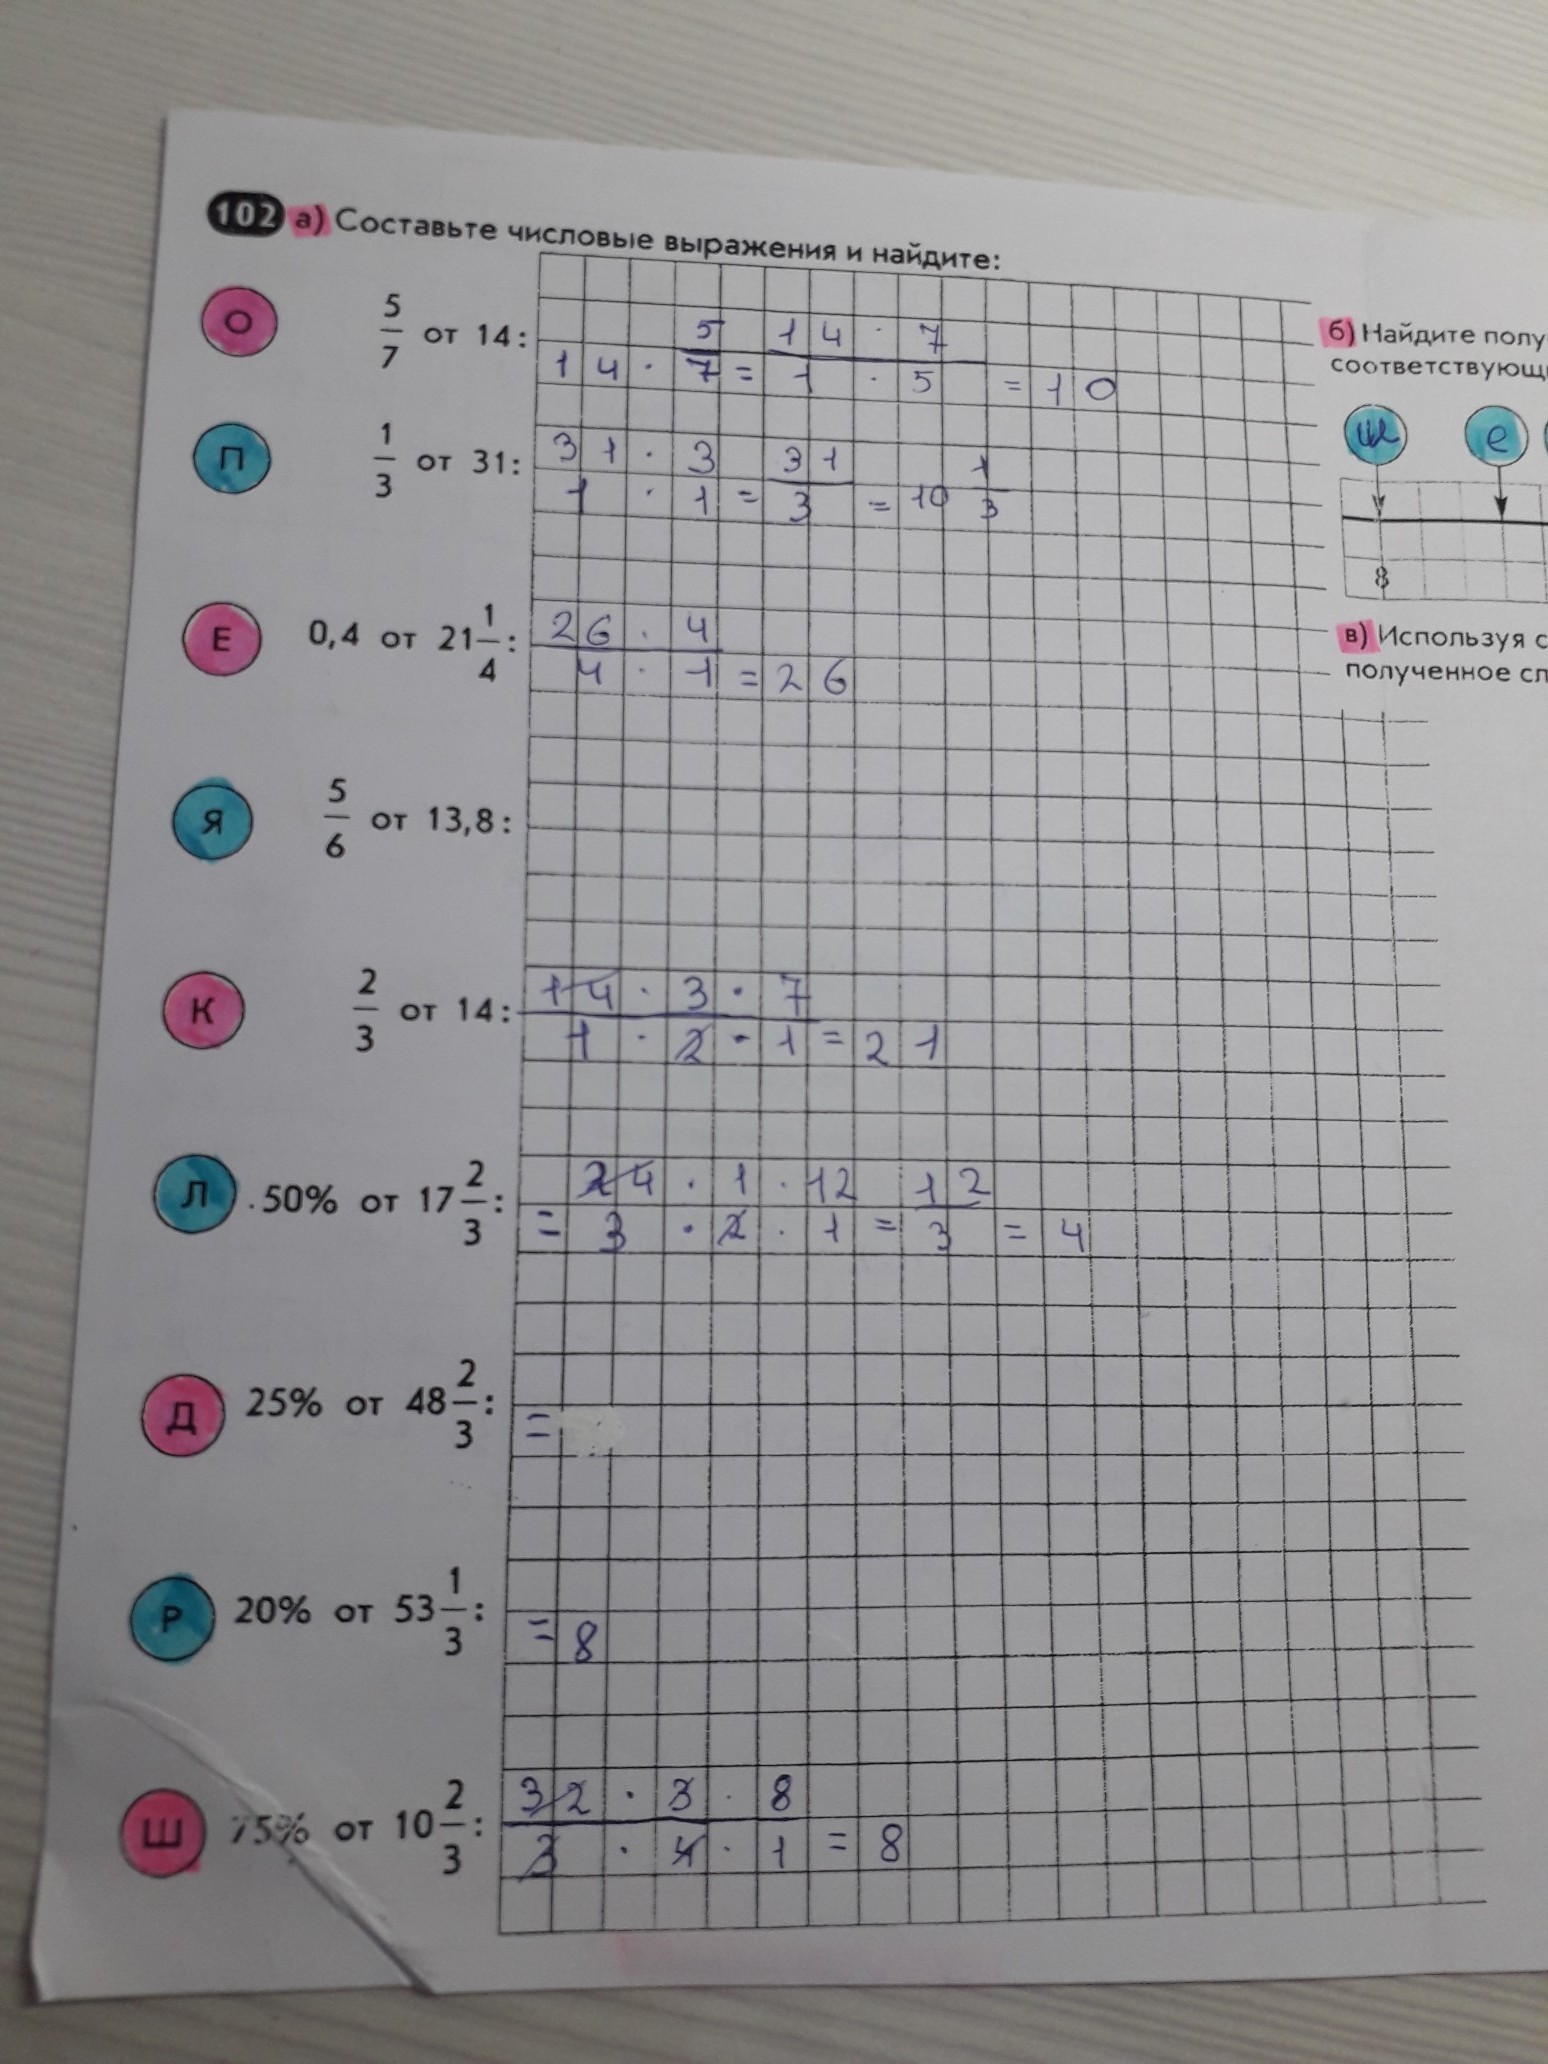 102 а) Составьте числовые выражения и найдите:
О 5/7 от 14: 14 · 5/7 = 14 · 7 / 1 · 5 = 10
П 1/3 от 31: 31 · 3 / 1 · 1 = 31/3 = 10 1/3
Е 0,4 от 21 1/4: 26 · 4 / 4 · 1 = 26
Я 5/6 от 13,8:
К 2/3 от 14: 14 · 3 · 7 / 1 · 2 · 1 = 21
Л 50% от 17 2/3: = 24 · 1 · 12 / 3 · 2 · 1 = 12/3 = 4
Д 25% от 48 2/3: =
Р 20% от 53 1/3: = 8
Ш 75% от 10 2/3: 32 · 3 · 8 / 3 · 4 · 1 = 8
б) Найдите полу
соответствующ
ш е
8
в) Используя с
полученное сл